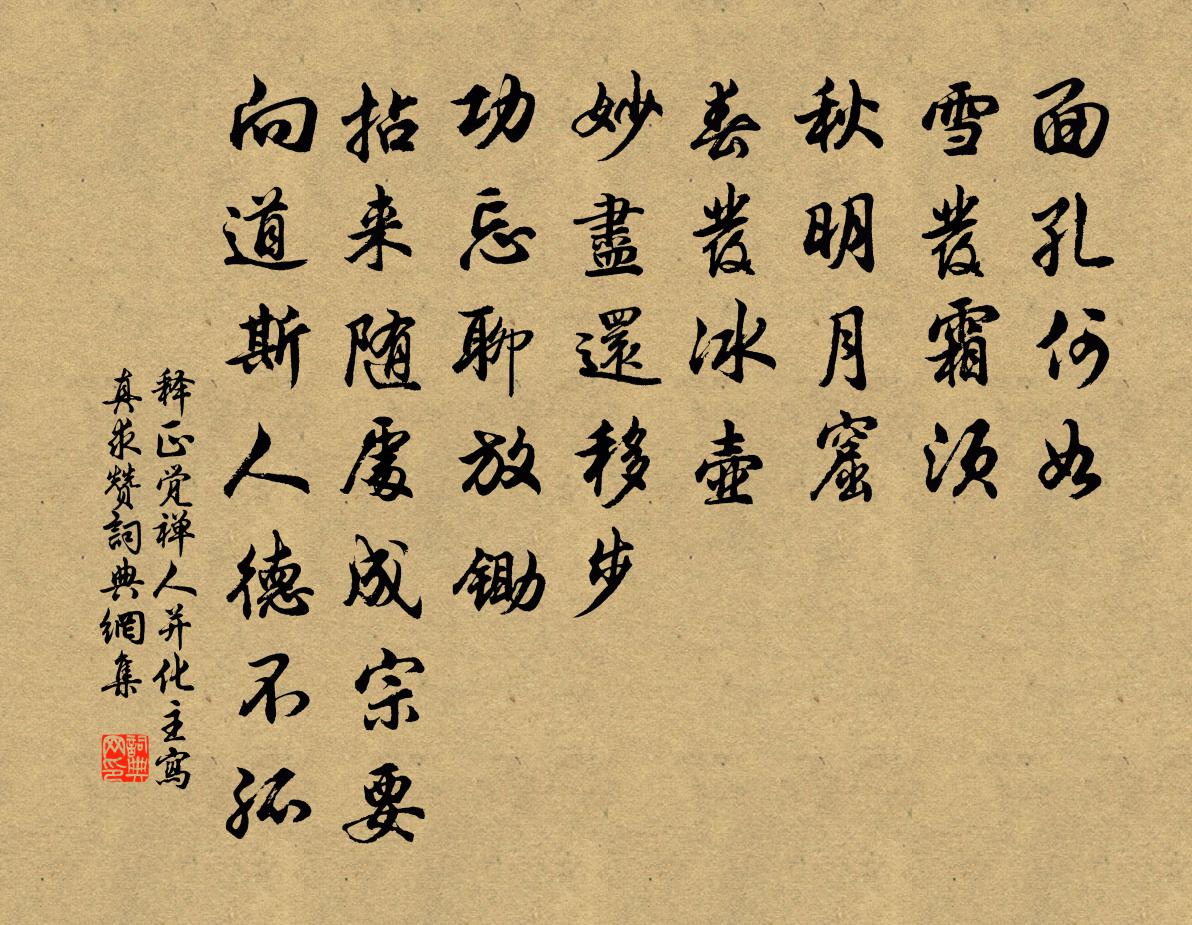 面孔何如
雪發霜须
秋明月窟
春發冰壺
妙盡還移步
功忘聊放鋤
拈来随處成宗要
向道斯人德不孤
释正觉禅人并化主寫
真求赞詞典網集
詞典网印